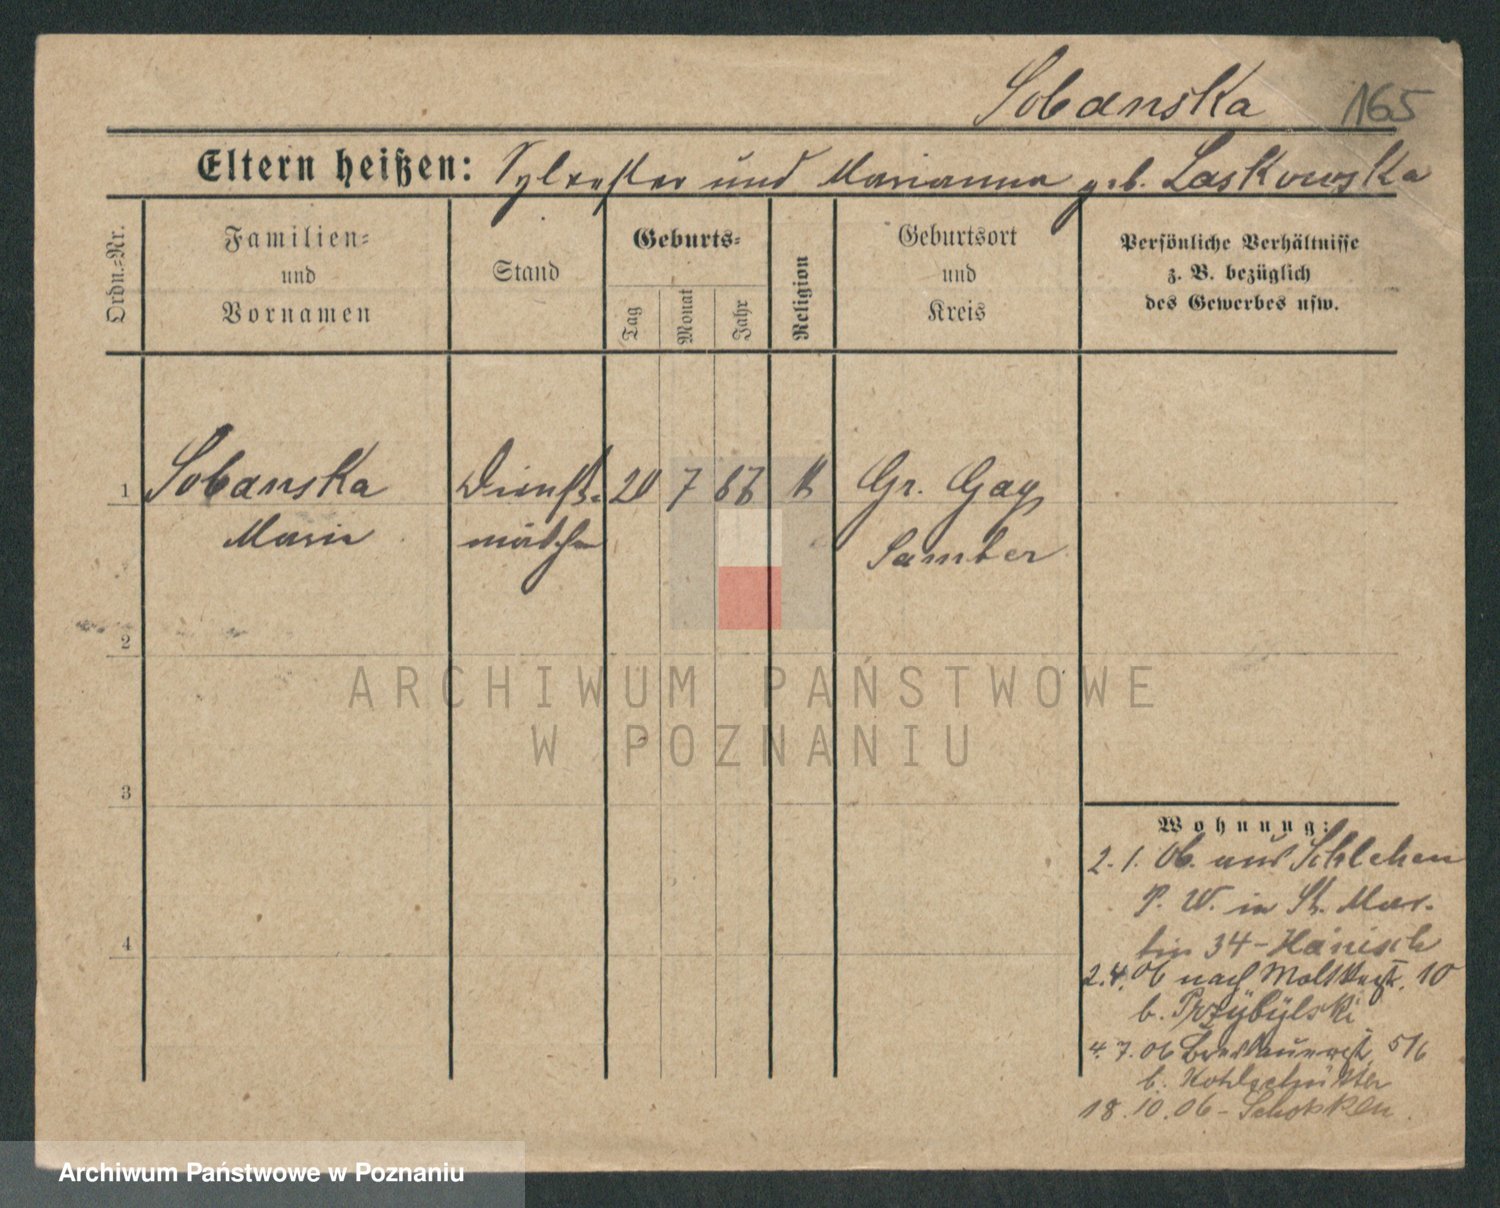 Sobanska 165
Eltern heißen: Sylvester und Marianna geb. Laskowska
Ordn.-Nr.
Familien-
und
Vornamen
Stand
Geburts-
Tag
Monat
Jahr
Religion
Geburtsort
und
Kreis
Persönliche Verhältnisse
z. B. bezüglich
des Gewerbes usw.
1 Sobanska Dienst- 20 7 87 K Gr. Gay
Marie mädchen Samter
2
ARCHIWUM PAŃSTWOWE
W POZNANIU
3
4
Wohnung:
2. 1. 06. aus Schlehen
P. W. in St. Mar-
tin 34 - Hänisch
2. 4. 06 nach Moltkestr. 10
b. Przybylski
4. 7. 06 5/6
b. Kohlschütter
18. 10. 06 - Schokken.
Archiwum Państwowe w Poznaniu